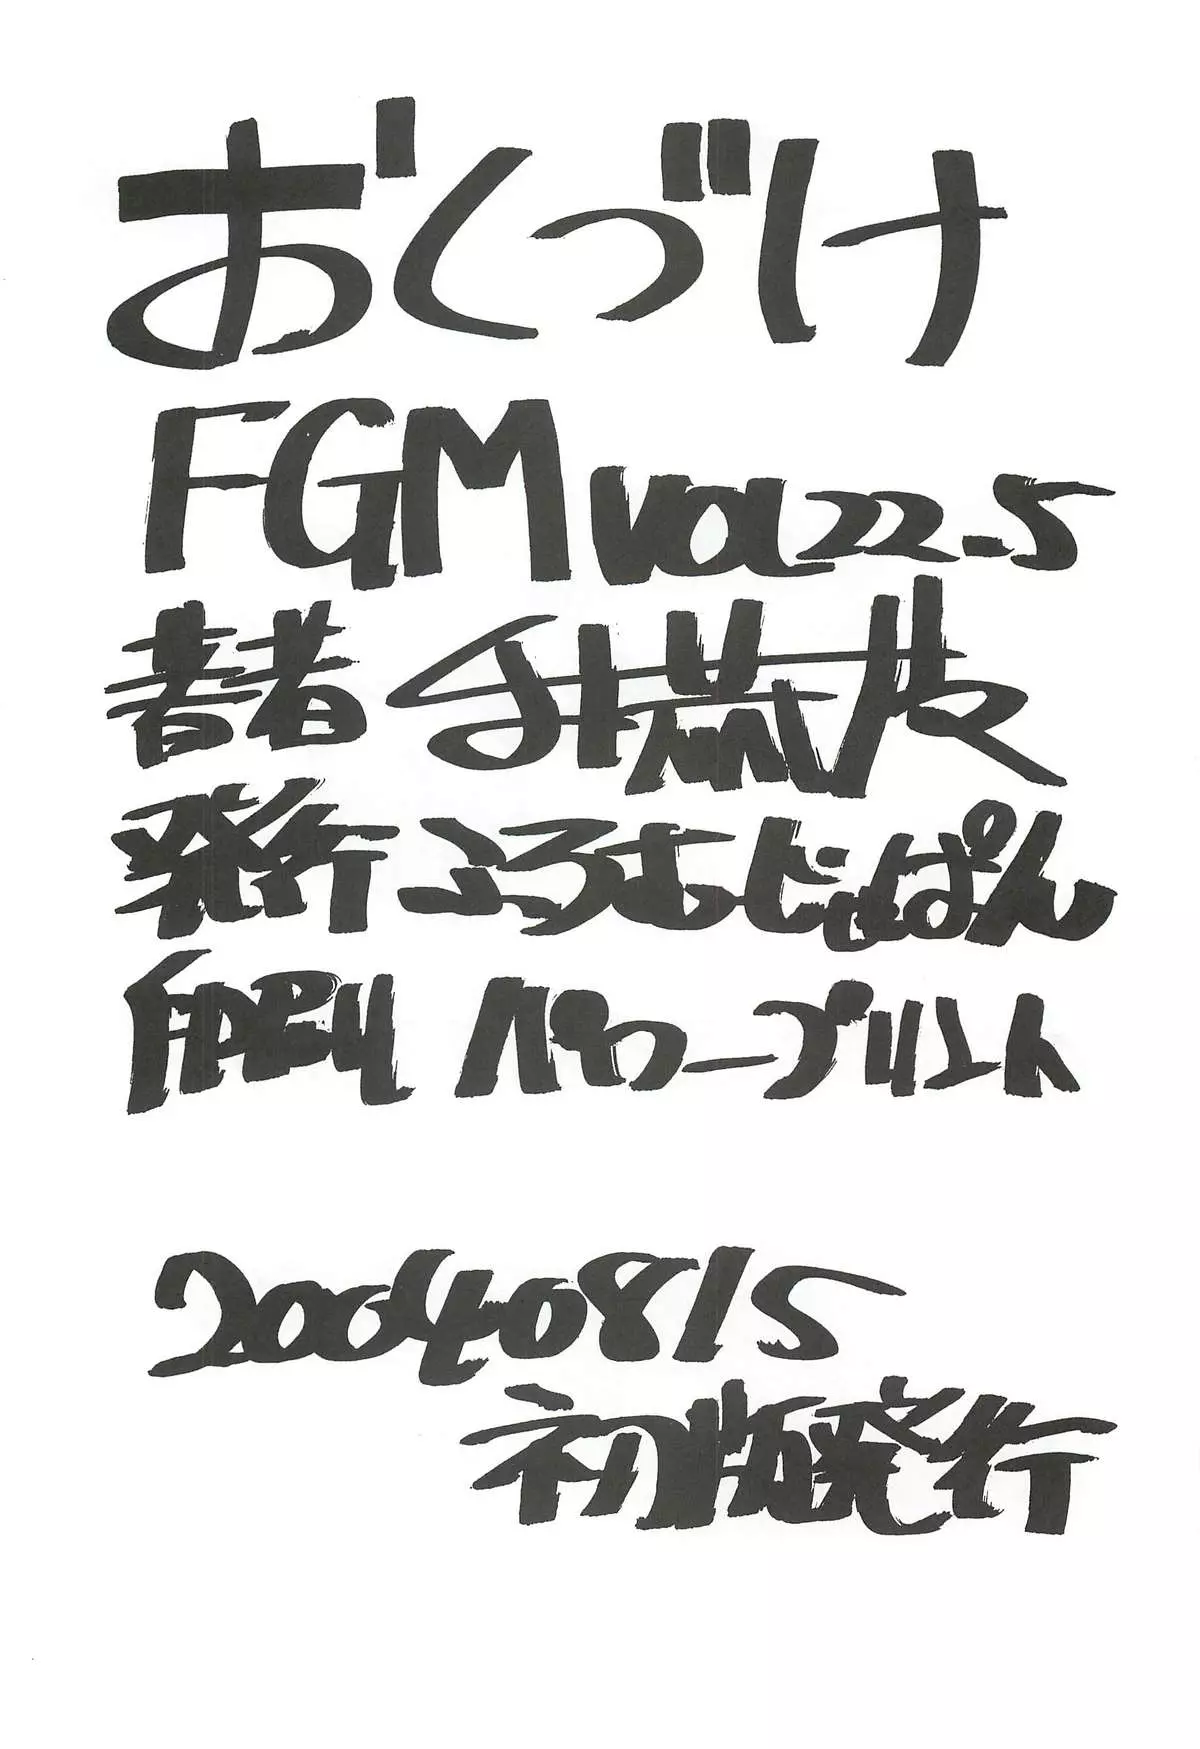 おくづけ
FGM VOL 22.5
著者
発行 ふろむじゃぱん
印刷 パワープリント
20040815
初版発行